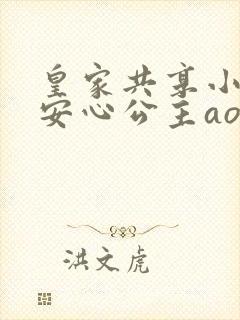 皇家共享小
安心公主ao
洪文虎